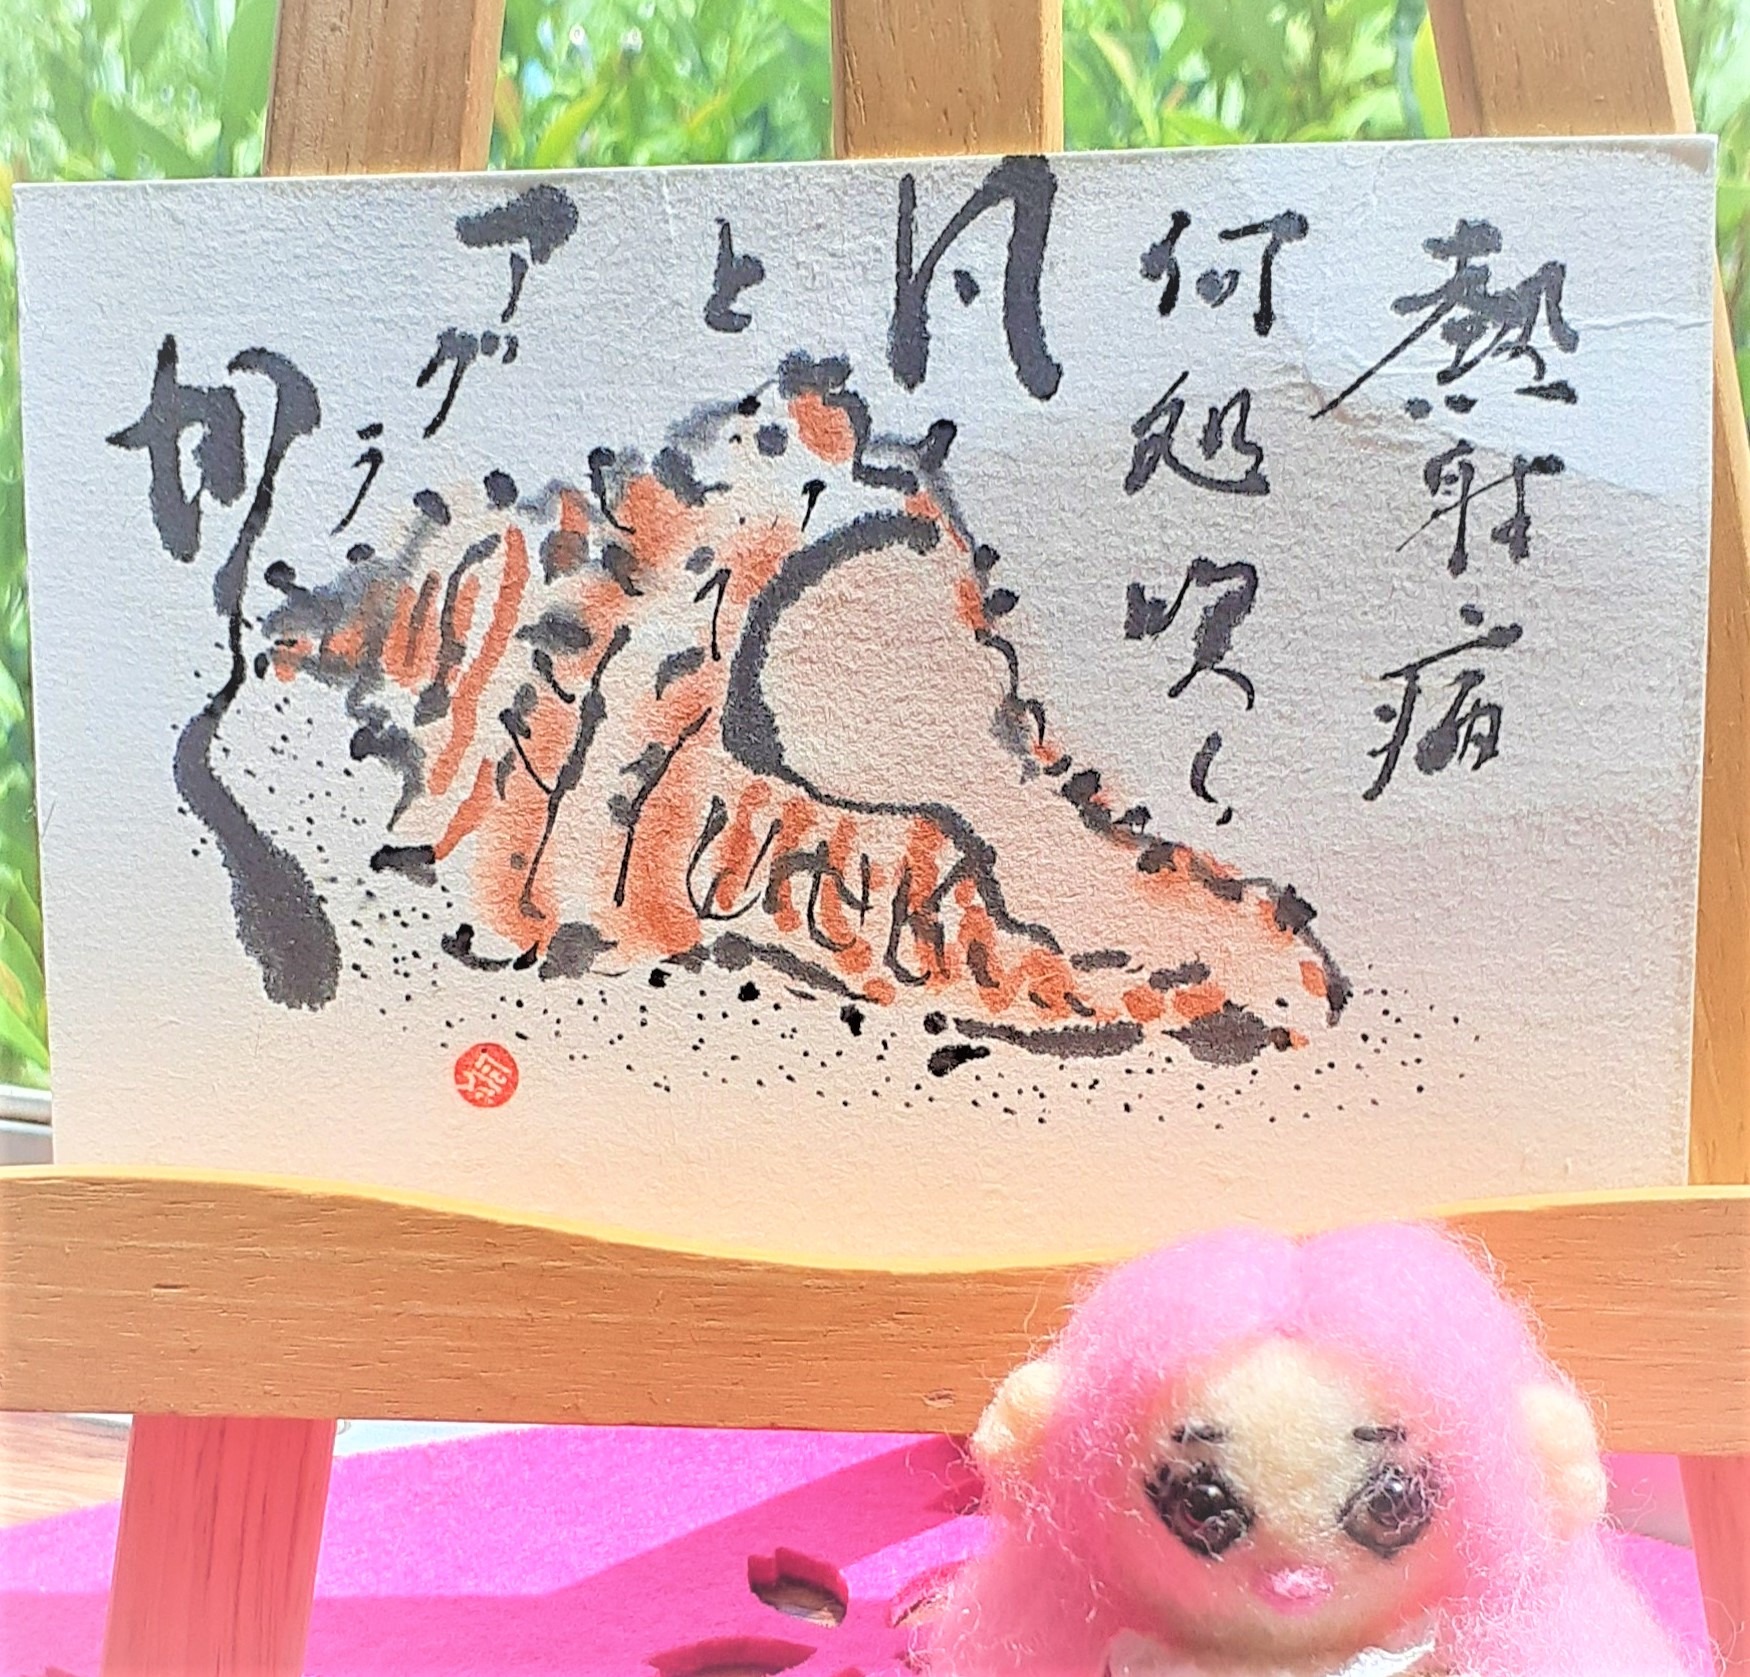 熱射病
何処吹く
風
と
アグラ
かく